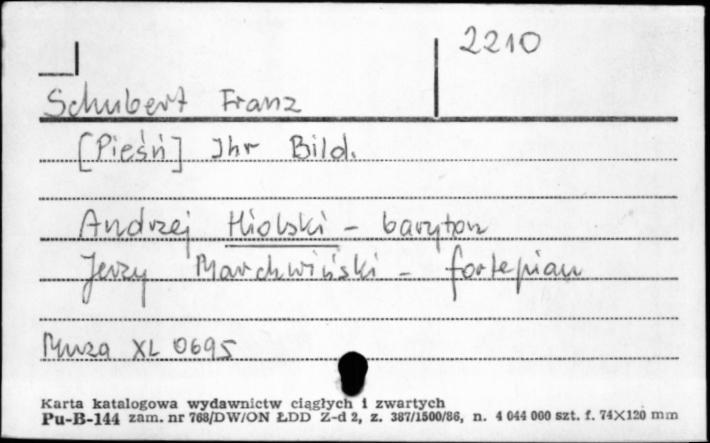 2210
Schubert Franz
[Pieśń] Ihr Bild.
Andrzej Hiolski - baryton
Jerzy Marchwiński - fortepian
Muza XL 0695
Karta katalogowa wydawnictw ciągłych i zwartych
Pu-B-144 zam. nr 768/DW/ON ŁDD Z-d 2, z. 387/1500/86, n. 4 044 000 szt. f. 74×120 mm